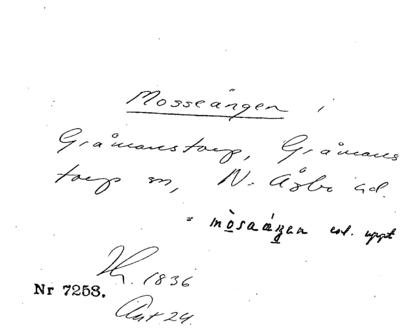 Mosseängen i
Gråmanstorp, Gråmans
torp sn, N. Åsbo hd.
= mòsaáŋen enl. uppt
Hr. 1836
Nr 7258.
Ant 24.